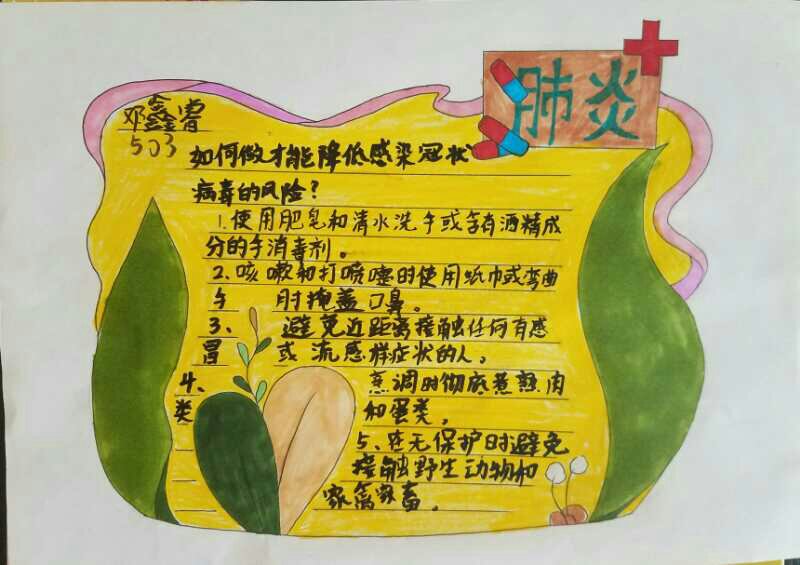 肺炎
邓鑫
503
如何做才能降低感染冠状
病毒的风险?
1.使用肥皂和清水洗手或含有酒精成
分的手消毒剂。
2.咳嗽和打喷嚏时使用纸巾或弯曲
手 肘掩盖口鼻。
3、 避免近距离接触任何有感
冒 或流感样症状的人。
4、 烹调时彻底煮熟肉
类 和蛋类。
5、在无保护时避免
接触野生动物和
家禽家畜。